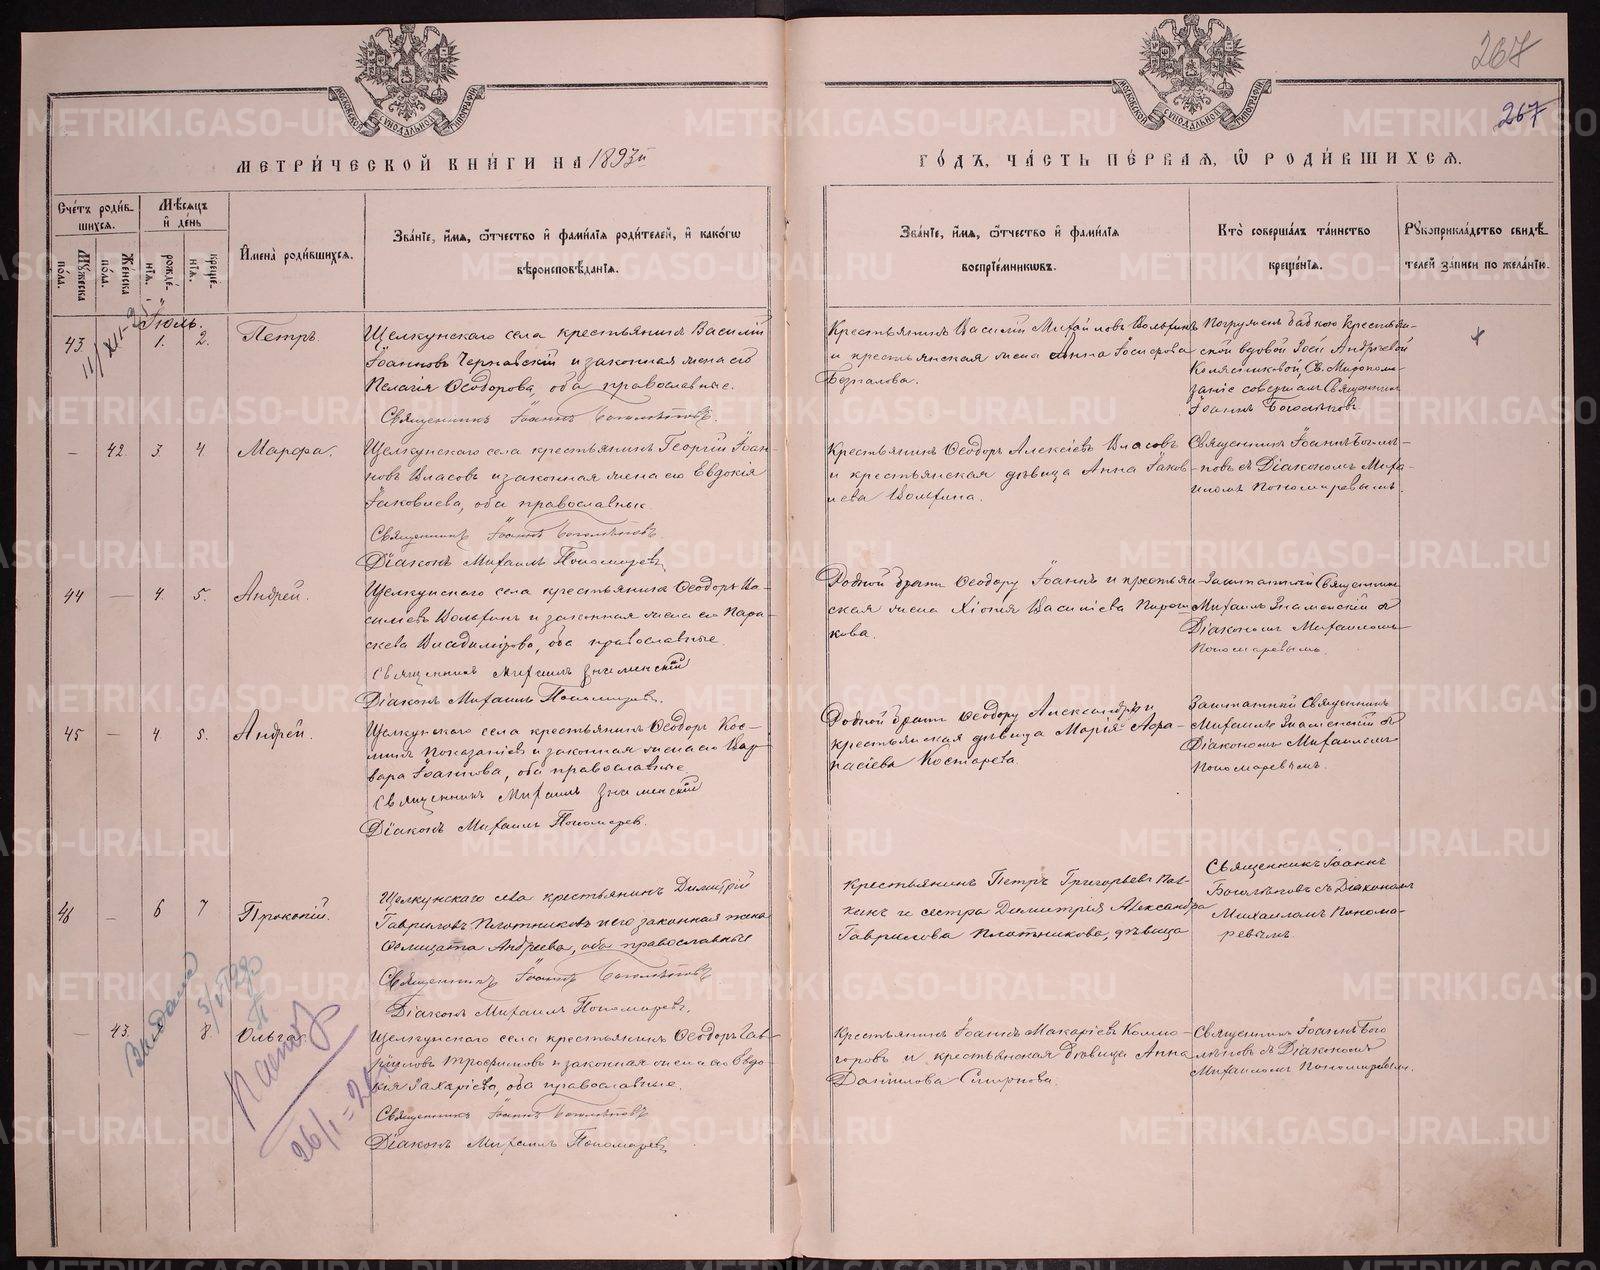 267
267
МЕТРИ́ЧЕСКОЙ КНИ́ГИ НА 1893й
ГО́ДЪ, ЧА́СТЬ ПЕ́РВАЯ, Ѡ РОДИ́ВШИХСЯ.
Сче́тъ роди́в-
шихся.
Му́жеска по́ла.
Же́нска по́ла.
Мѣ́сяцъ
и де́нь
рожде́-
нія.
креще́-
нія.
И҆мена̀ роди́вшихся.
Зва́ніе, и҆́мя, ѻ҆́тчество и҆ фами́лія роди́телей, и҆ како́гѡ
вѣроисповѣ́данія.
Зва́ніе, и҆́мя, ѻ҆́тчество и҆ фами́лія
воспріе́мниковъ.
Кто̀ соверша́лъ та́инство
креще́нія.
Рꙋкоприкла́дство свидѣ́-
телей за́писи по жела́нію.
Іюль.
43. 1. 2. Петръ.
Щелкунскаго села крестьянинъ Василій
Іоанновъ Чернавскій и законная жена его
Пелагія Ѳеодорова, оба православные.
Священникъ Іоаннъ Боголѣповъ.
Крестьянинъ Василій Михайловъ Вольхинъ
и крестьянская жена Анна Іосифова
Безпалова.
Погруженъ бабкою крестьян-
ской вдовой Андреевой
Колясниковой, Св. Миропома-
заніе совершалъ Священникъ
Іоаннъ Боголѣповъ
— 42 3 4 Марѳа.
Щелкунскаго села крестьянинъ Георгій Іоан-
новъ Власовъ и законная жена его Евдокія
Іаковлева, оба православные
Священникъ Іоаннъ Боголѣповъ
Діаконъ Михаилъ Пономаревъ
Крестьянинъ Ѳеодоръ Алексѣевъ Власовъ
и крестьянская дѣвица Анна Іаков-
лева Вольхина.
Священникъ Іоаннъ Боголѣ-
повъ съ Діакономъ Миха-
иломъ Пономаревымъ.
44 — 4. 5. Андрей.
Щелкунского села крестьянина Ѳеодоръ Ва-
сильевъ Вольхинъ и законная жена его Пара-
скева Владимірова, оба православные.
Священникъ Михаилъ Знаменскій
Діаконъ Михаилъ Пономаревъ.
Родной братъ Ѳеодору Іоаннъ и крестьян-
ская жена Хіонія Василіева
кова.
Заштатный Священник
Михаилъ Знаменскій съ
Діакономъ Михаиломъ
Пономаревымъ.
45 — 4 5. Андрей.
Щелкунскаго села крестьянинъ Ѳеодоръ Кос-
минъ и законная жена его Вар-
вара Іоаннова, оба православные
Священникъ Михаилъ Знаменскій
Діаконъ Михаилъ Пономарев.
Родной братъ Ѳеодору Александръ и
крестьянская дѣвица Марія Аѳа-
насіева Костарева.
Заштатный Священникъ
Михаилъ Знаменскій съ
Діакономъ Михаиломъ
Пономаревымъ.
46 — 6 7 Прокопій.
Щелкунскаго села крестьянинъ Димитрій
Гавриловъ Плотниковъ и его законная жена
Андреева, оба православные
Священникъ Іоаннъ Боголѣповъ
Діаконъ Михаилъ Пономаревъ.
Крестьянинъ Петръ Григорьевъ
и сестра Димитрія Александра
Гаврилова Плотникова, дѣвица
Священникъ Іоаннъ
Боголѣповъ съ Діакономъ
Михаиломъ Понома-
ревымъ.
— 43. 8. Ольга.
Щелкунскаго села крестьянинъ Ѳеодоръ Гав-
риловъ Трофимовъ и законная жена его Евдо-
кія Захаріева, оба православные.
Священникъ Іоаннъ Боголѣповъ
Діаконъ Михаилъ Пономаревъ
Крестьянинъ Іоаннъ Макаріевъ Комно-
горовъ и крестьянская дѣвица Анна
Даніилова Смирнова.
Священникъ Іоаннъ Бого-
лѣповъ съ Діакономъ
Михаиломъ Пономаревым.
METRIKI.GASO-URAL.RU